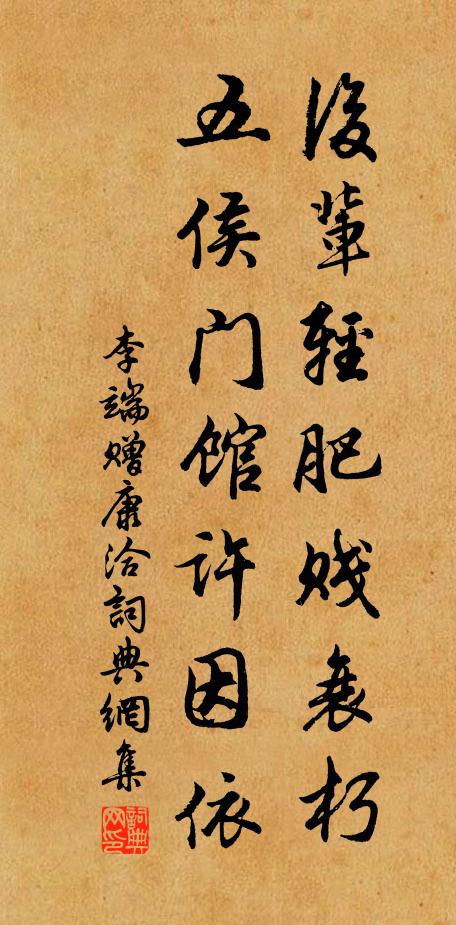 後輩輕肥賤衰朽
五侯门馆许因依
李端赠康洽詞典網集
詞典网印